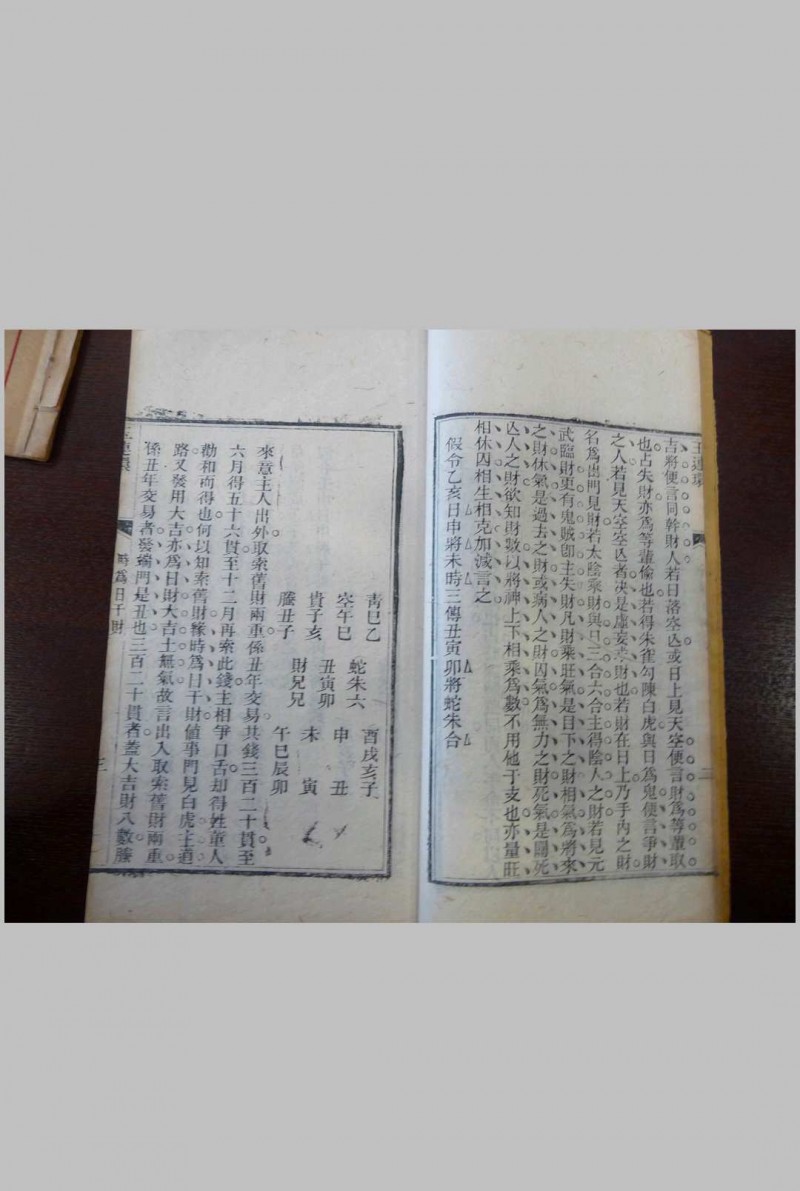 玉連環
二
吉將便言同幹財人若日落空亾或日上見天空便言財爲等輩取
也占失財亦爲等輩偷也若得朱雀勾陳白虎與日爲鬼便言爭財
之人若見天空空亾者決是虛妄財也若財在日上乃手內之財
名爲出門見財若太陰乘財與日三合六合主得陰人之財若見元
武臨財更有鬼賊卽主失財凡財乘旺氣是目下之財相氣爲將來
之財休氣是過去之財或病人之財囚氣爲無力之財死氣是鬭死
亾人之財欲知財數以將神上下相乘爲數不用他干支也亦量旺
相休囚相生相克加減言之
假令乙亥日申將未時三傳丑寅卯將蛇朱合
青巳乙 酉戌亥子
蛇朱六
空午巳 申 丑
丑寅卯
貴子亥 未 寅
財兄兄
螣丑子 午巳辰卯
來意主人出外取索舊財兩重係丑年交易共錢三百二十貫至
六月得五十六貫至十二月再索此錢主相爭口舌却得姓董人
勸和而得也何以知索舊財緣時爲日干財値事門見白虎主道
路又發用大吉亦爲日財大吉土無氣故言出入取索舊財兩重
係丑年交易者發端門是丑也三百二十貫者蓋大吉財八數螣
玉連環
時爲日干財
三